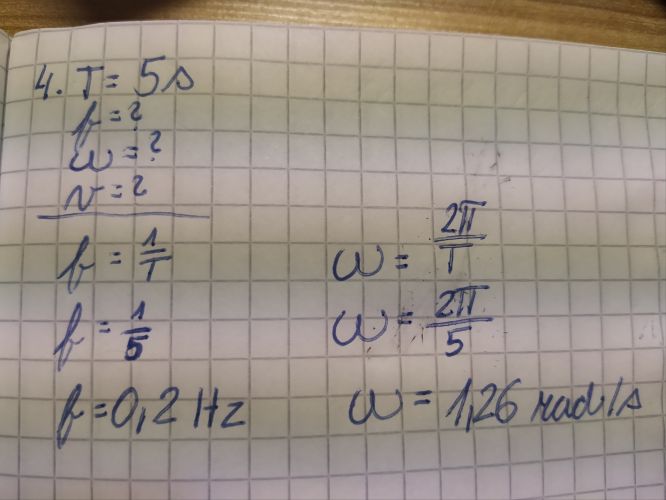 4. T = 5s
f = ?
ω = ?
v = ?
f = 1/T
f = 1/5
f = 0,2 Hz
ω = 2π/T
ω = 2π/5
ω = 1,26 rad/s